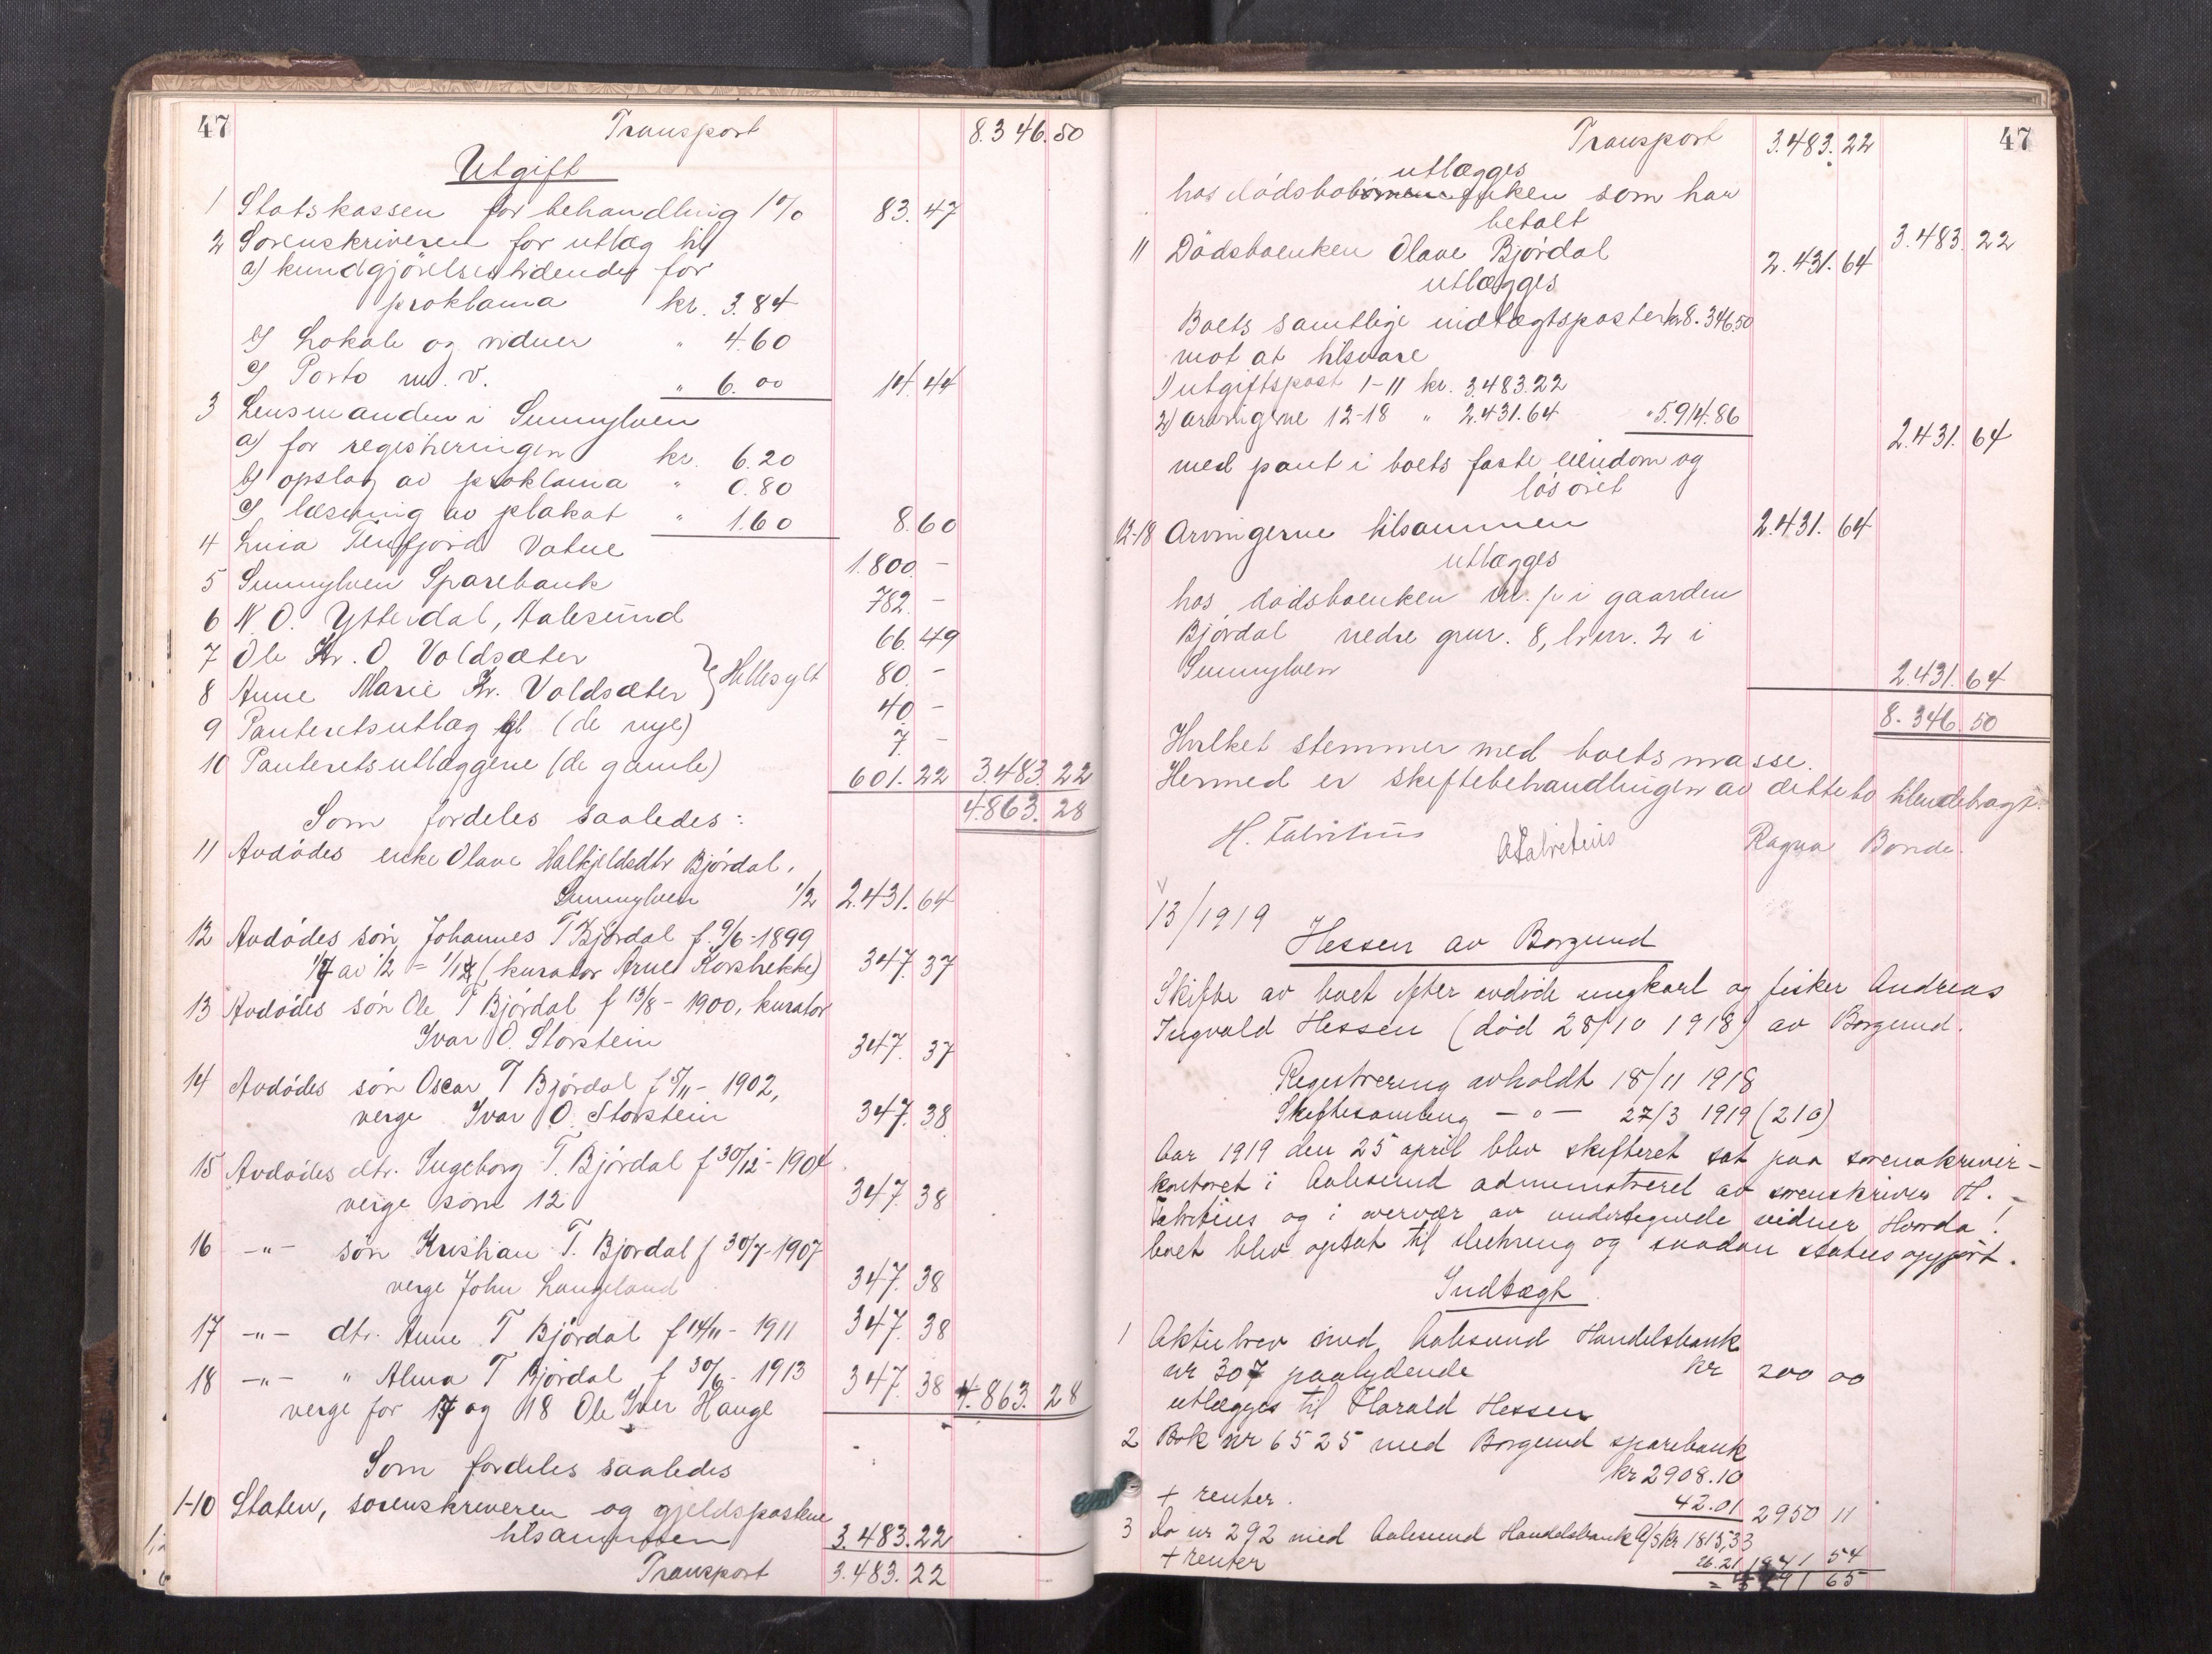 47 Transport 8.346.50
Utgift
1 Statskassen for behandling 1% 83.47
2 Sorenskriveren for utlæg til
a) kundgjörelsestidender for
proklama kr. 3.84
b) Lokale og vidner " 4.60
c) Porto m. v. " 6.00 14.44
3 Lensmanden i Sunnylven
a) for registreringen kr. 6.20
b) opslag av proklama " 0.80
c) læsning av plakat " 1.60 8.60
4 Lina Tenfjord Vatne 1.800.-
5 Sunnylven Sparebank 782.-
6 N. O. Ytterdal, Aalesund 66.49
7 Ole Kr. O Voldsæter 80.-
8 Anne Marie Kr. Voldsæter } Hellesylt 40.-
9 Panteretsutlæg (de nye) 7.-
10 Panteretsutlæggene (de gamle) 601.22 3.483.22
4.863.28
Som fordeles saaledes:
11 Avdödes enke Olave Halkjeldsdtr Björdal,
Sunnylven 1/2 2.431.64
12 Avdödes sön Johannes T Björdal f. 9/6-1899
1/7 av 1/2 = 1/14 (kurator Arne Korsbrekke) 347.37
13 Avdödes sön Ole T Björdal f 13/8-1900, kurator
Ivar O. Storstein 347.37
14 Avdödes sön Oscar T Björdal f 5/11-1902,
verge Ivar O. Storstein 347.38
15 Avdödes dtr. Ingeborg T. Björdal f 30/12-1904
verge som 12 347.38
16 -"- sön Kristian T. Björdal f 30/7-1907
verge John Langeland 347.38
17 -"- dtr. Anne T Björdal f 14/11-1911 347.38
18 -"- " Alma T Björdal f 30/6-1913 347.38 4.863.28
verge for 17 og 18 Ole Iver Hauge
Som fordeles saaledes
1-10 Staten, sorenskriveren og gjeldspostene
tilsammen 3.483.22
Transport 3.483.22
Transport 3.483.22 47
utlægges
hos dödsboenken som har
betalt 3.483.22
11 Dödsboenken Olave Björdal 2.431.64
utlægges
Boets samtlige indtægtsposter kr 8.346.50
mot at tilsvare
1) utgiftspost 1-11 kr. 3.483.22
2) arvingerne 12-18 " 2.431.64 " 5.914.86
2.431.64
med pant i boets faste eiendom og
lösöret
12-18 Arvingerne tilsammen 2.431.64
utlægges
hos dödsboenken m. p. i gaarden
Björdal nedre gnr. 8, br.nr. 2 i
Sunnylven 2.431.64
8.346.50
Hvilket stemmer med boets masse.
Hermed er skiftebehandlingen av dette bo tilendebragt.
H. Fabritius AFabritius Ragna Bonde.
13/1919
Hessen av Borgund
Skifte av boet efter avdöde ungkarl og fisker Andreas
Ingvald Hessen (död 28/10 1918) av Borgund.
Registrering avholdt 18/11 1918
Skiftesamling - " - 27/3 1919 (210)
Aar 1919 den 25 april blev skifteret sat paa sorenskriver-
kontoret i Aalesund administreret av sorenskriver H.
Fabritius og i overvær av undertegnede vidner. Hvorda!
boet blev optat til slutning og saadan status opgjort.
Indtægt.
1 Aktiebrev med Aalesund Handelsbank
nr 307 paalydende kr 200 00
utlægges til Harald Hessen
2 Bok nr 6525 med Borgund sparebank
kr 2908.10
+ renter. 42.01 2950 11
3 do nr 292 med Aalesund Handelsbank A/S kr 1815,33
+ renter 26.21 1841 54
= 4991 65